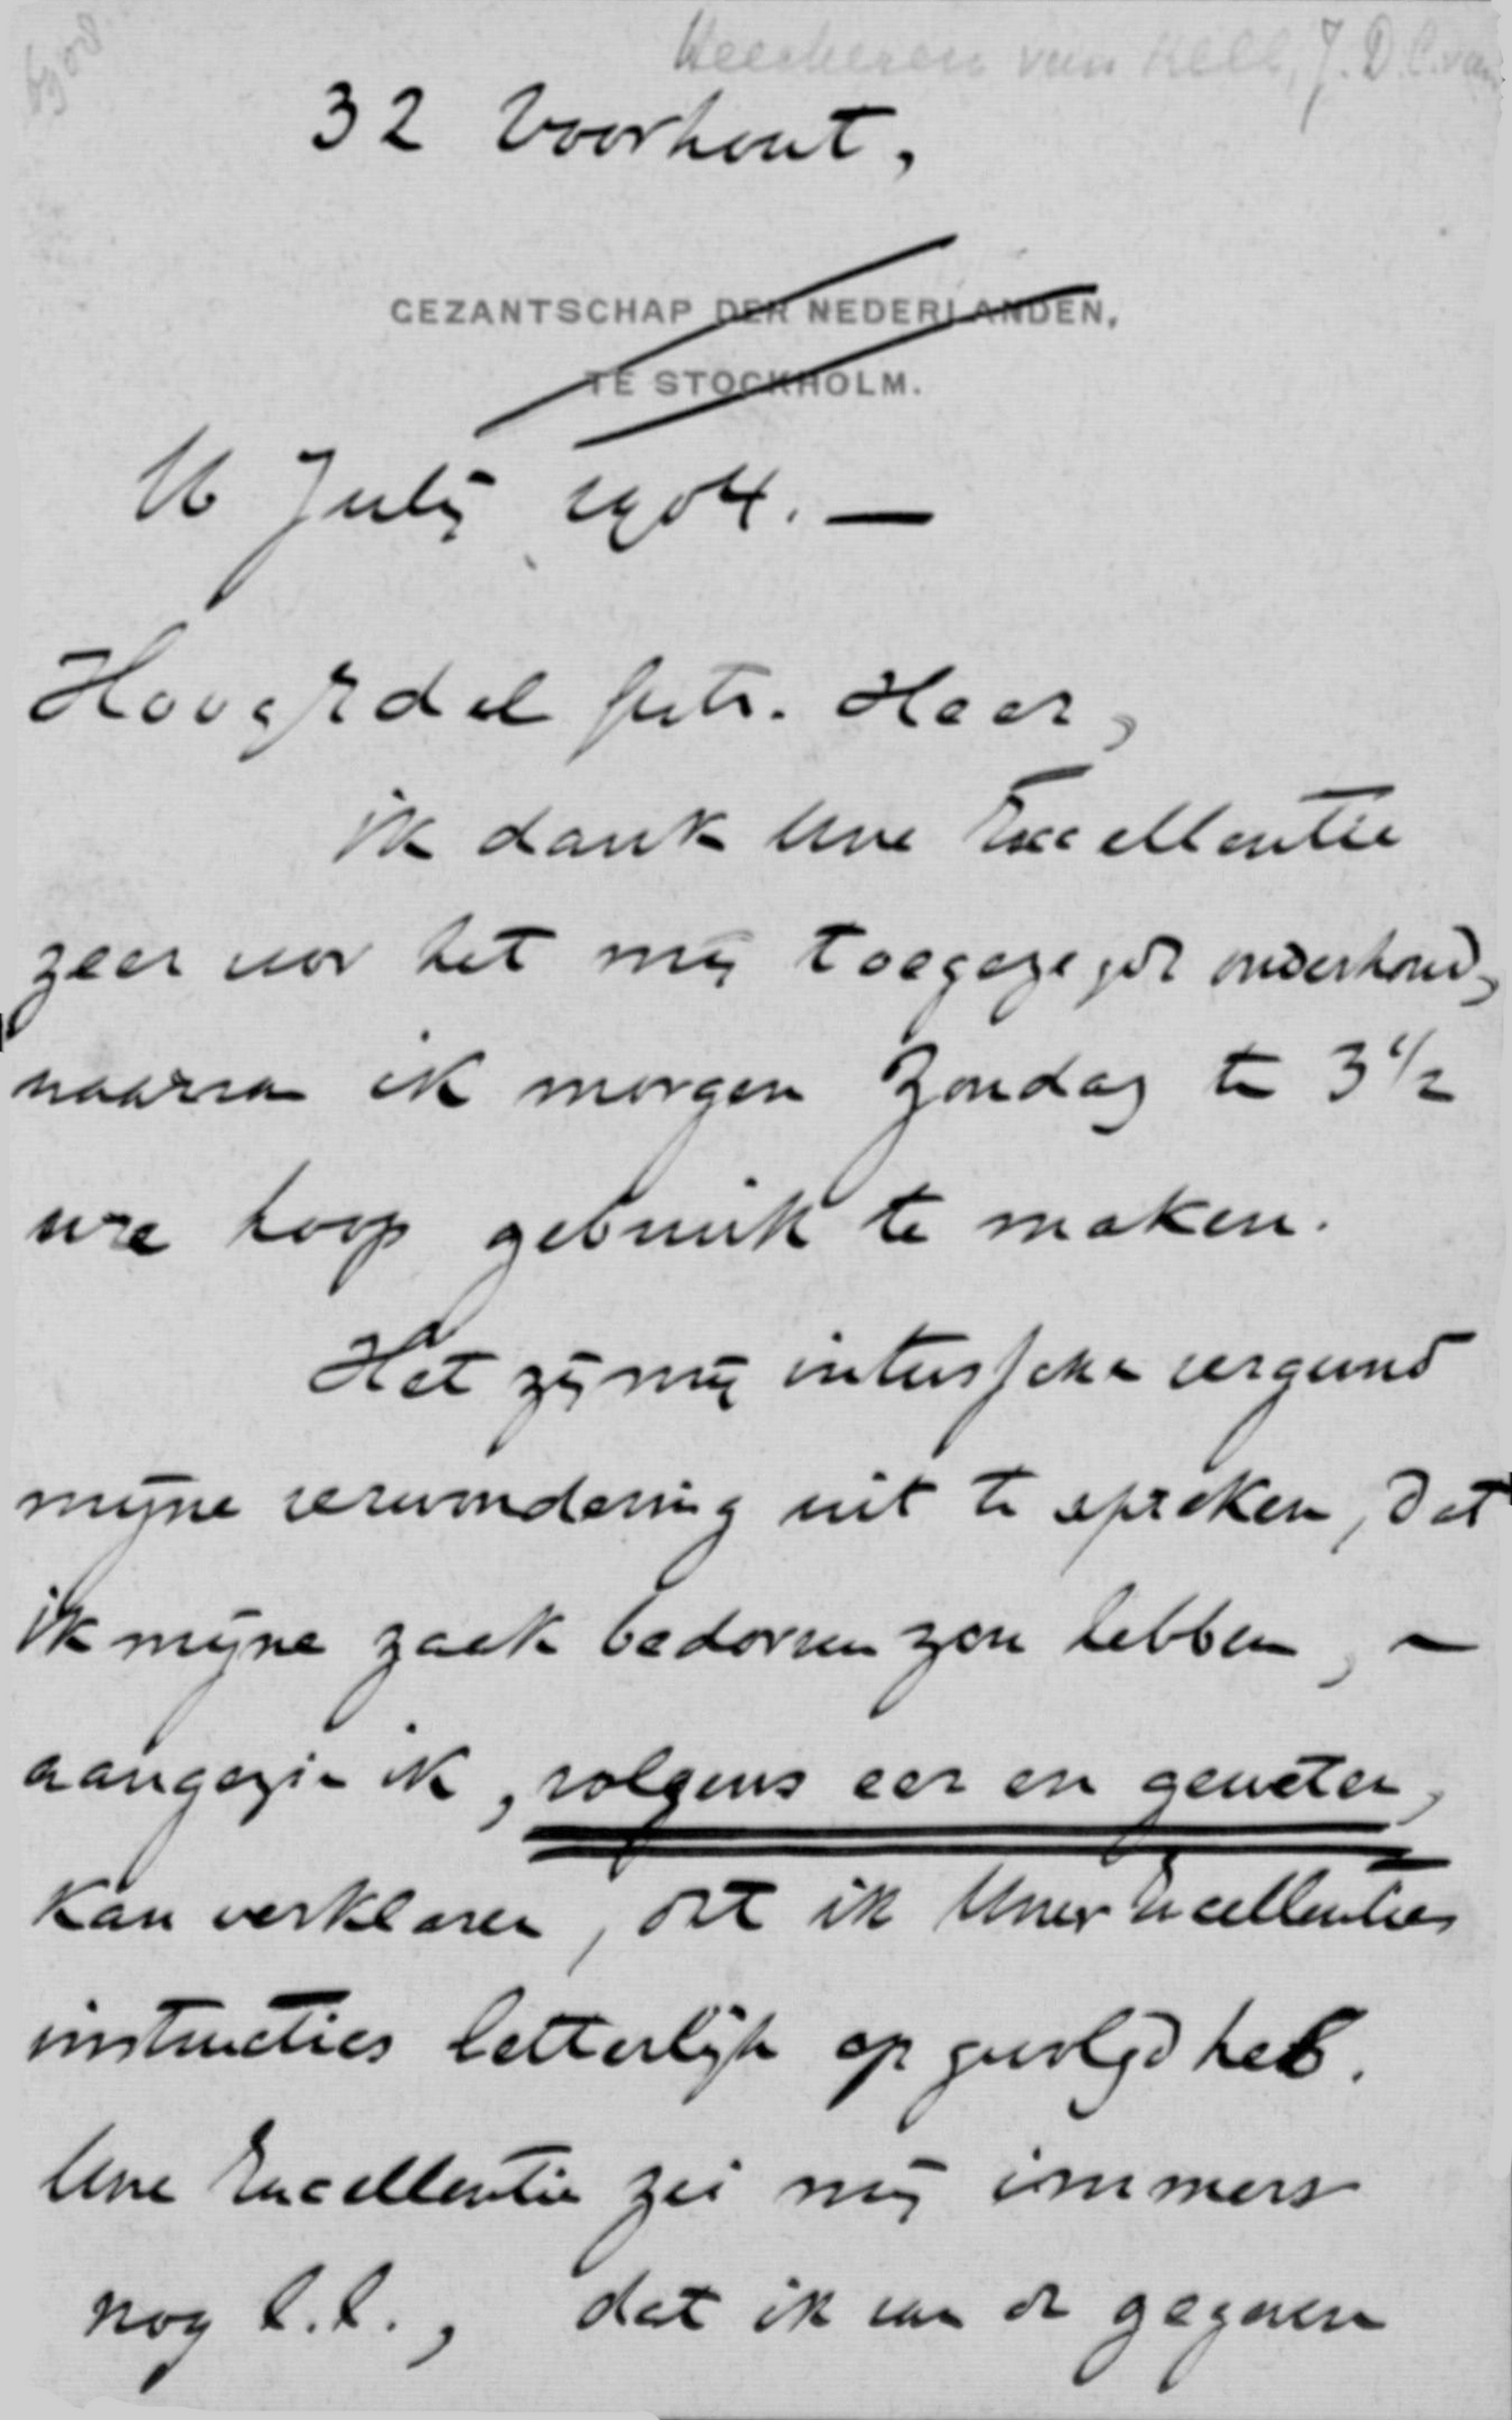 Heeckeren van Kell, J. D. C. van
32 Voorhout,
GEZANTSCHAP DER NEDERLANDEN,
TE STOCKHOLM.
16 July 1904. —
HoogEdel gestr. Heer,
ik dank Uwe Excellentie
zeer voor het mij toegezegde onderhoud,
waarvan ik morgen Zondag te 3 1/2
ure hoop gebruik te maken.
Het zij mij intusschen vergund
mijne verwondering uit te spreken, dat
ik mijne zaak bedorven zou hebben, —
aangezien ik, volgens eer en geweten,
kan verklaren, dat ik Uwer Excellenties
instructies letterlijk opgevolgd heb.
Uwe Excellentie zei mij immers
nog l.l., dat ik van de gegeven